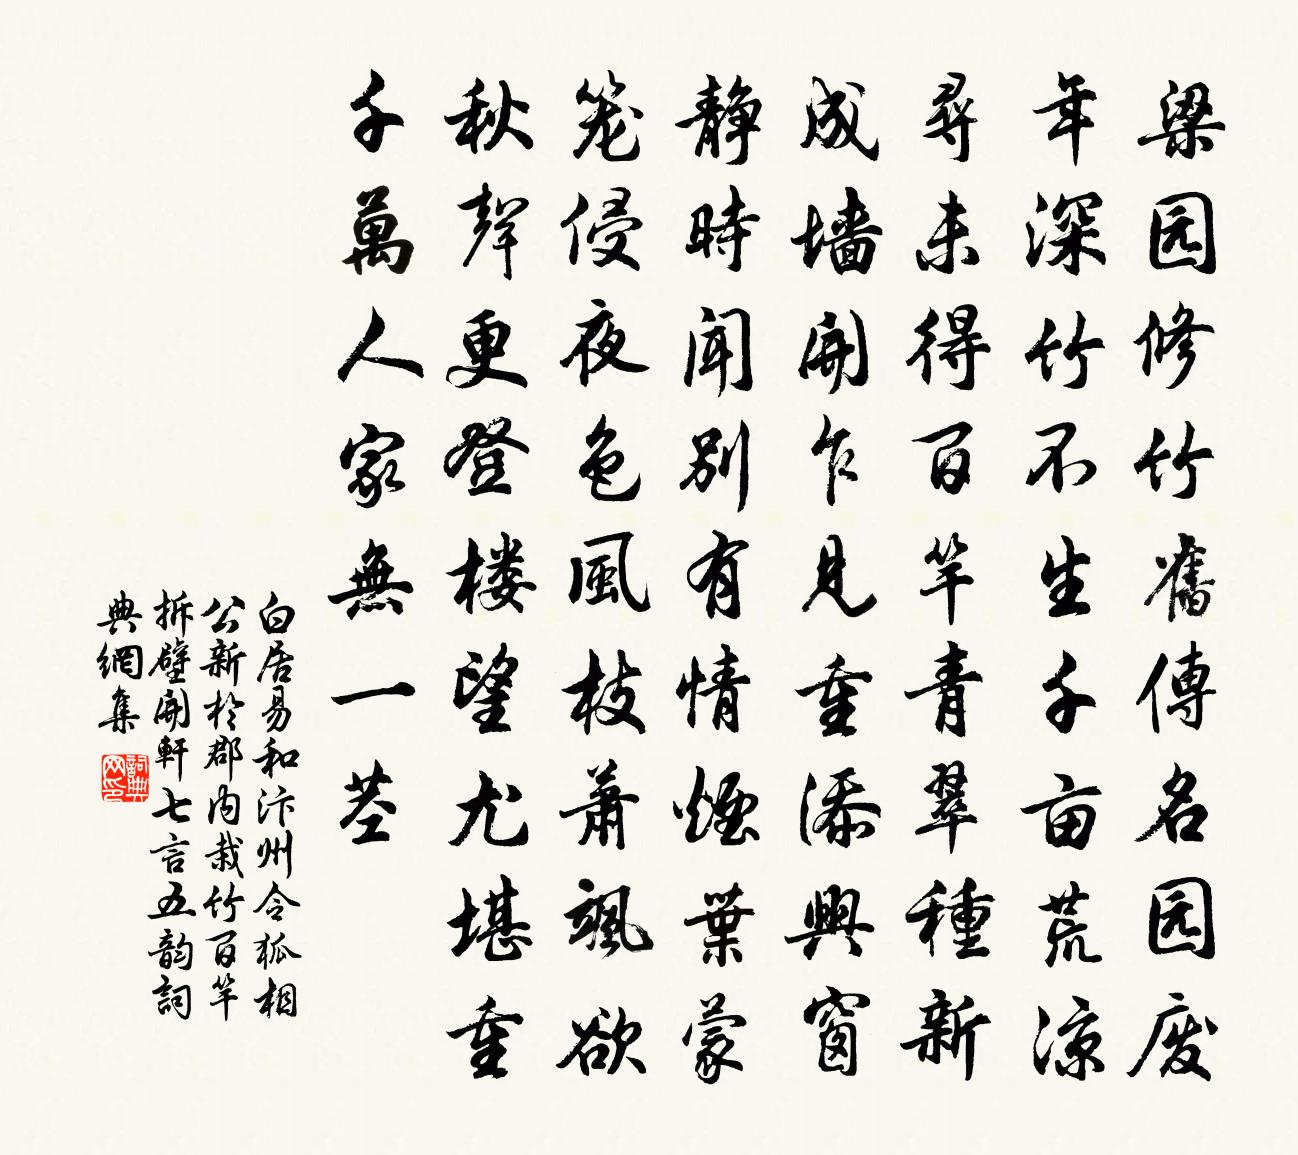 梁园修竹舊傳名园废
年深竹不生千亩荒涼
尋未得百竿青翠種新
成墙開乍見重添興窗
静時聞别有情煙葉蒙
笼侵夜色風枝萧颯欲
秋聲更登楼望尤堪重
千萬人家無一茎
白居易和汴州令狐相
公新於郡内栽竹百竿
拆壁開軒七言五韵詞
典網集
詞典网印